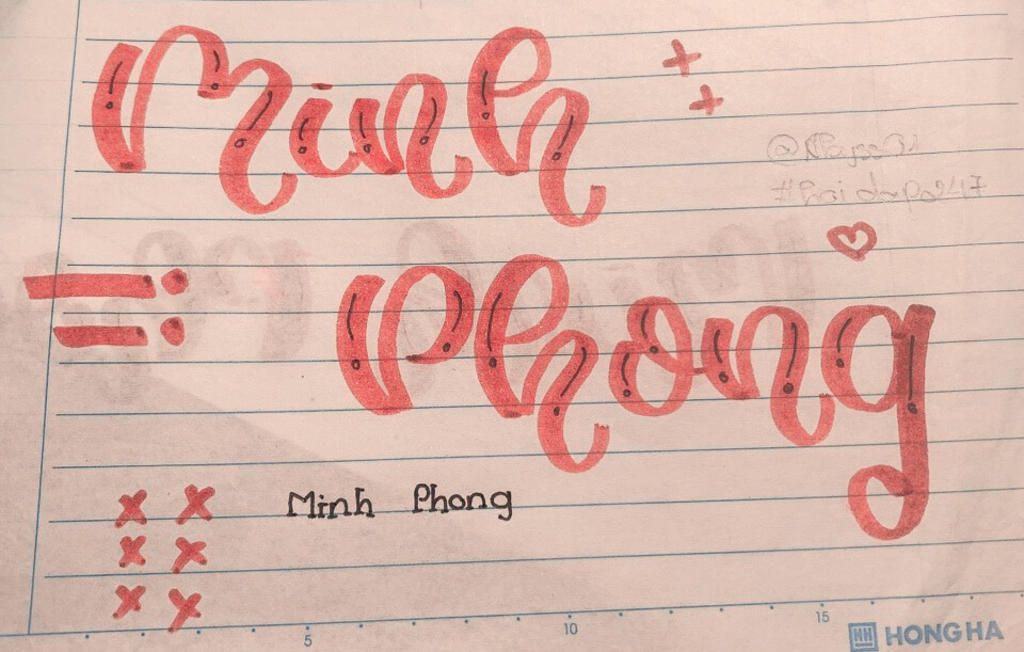 Minh
Phong
Minh Phong
5 10 15
HONG HA